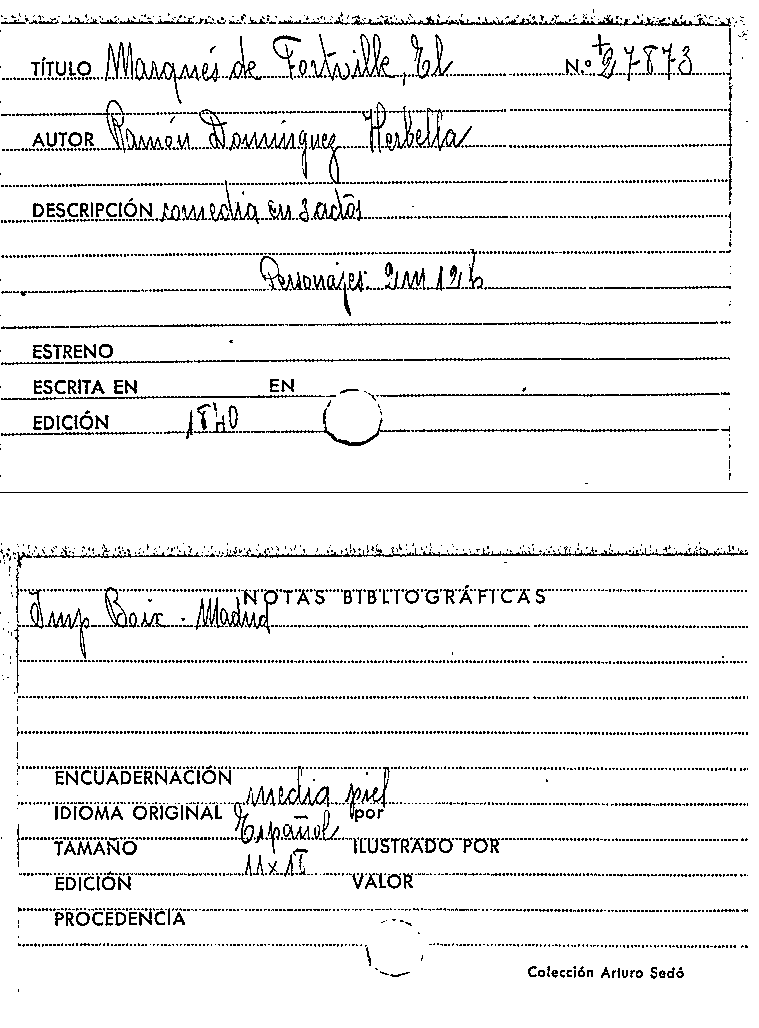 TÍTULO Marqués de Fortville, El N.º +27873
AUTOR Ramón Domínguez Herbella
DESCRIPCIÓN comedia en 3 actos
Personajes: 2m 12h
ESTRENO
ESCRITA EN EN
EDICIÓN 1840
NOTAS BIBLIOGRÁFICAS
Imp Boix - Madrid
ENCUADERNACIÓN media piel
IDIOMA ORIGINAL Español por
TAMAÑO 11x18 ILUSTRADO POR
EDICIÓN VALOR
PROCEDENCIA
Colección Arturo Sedó